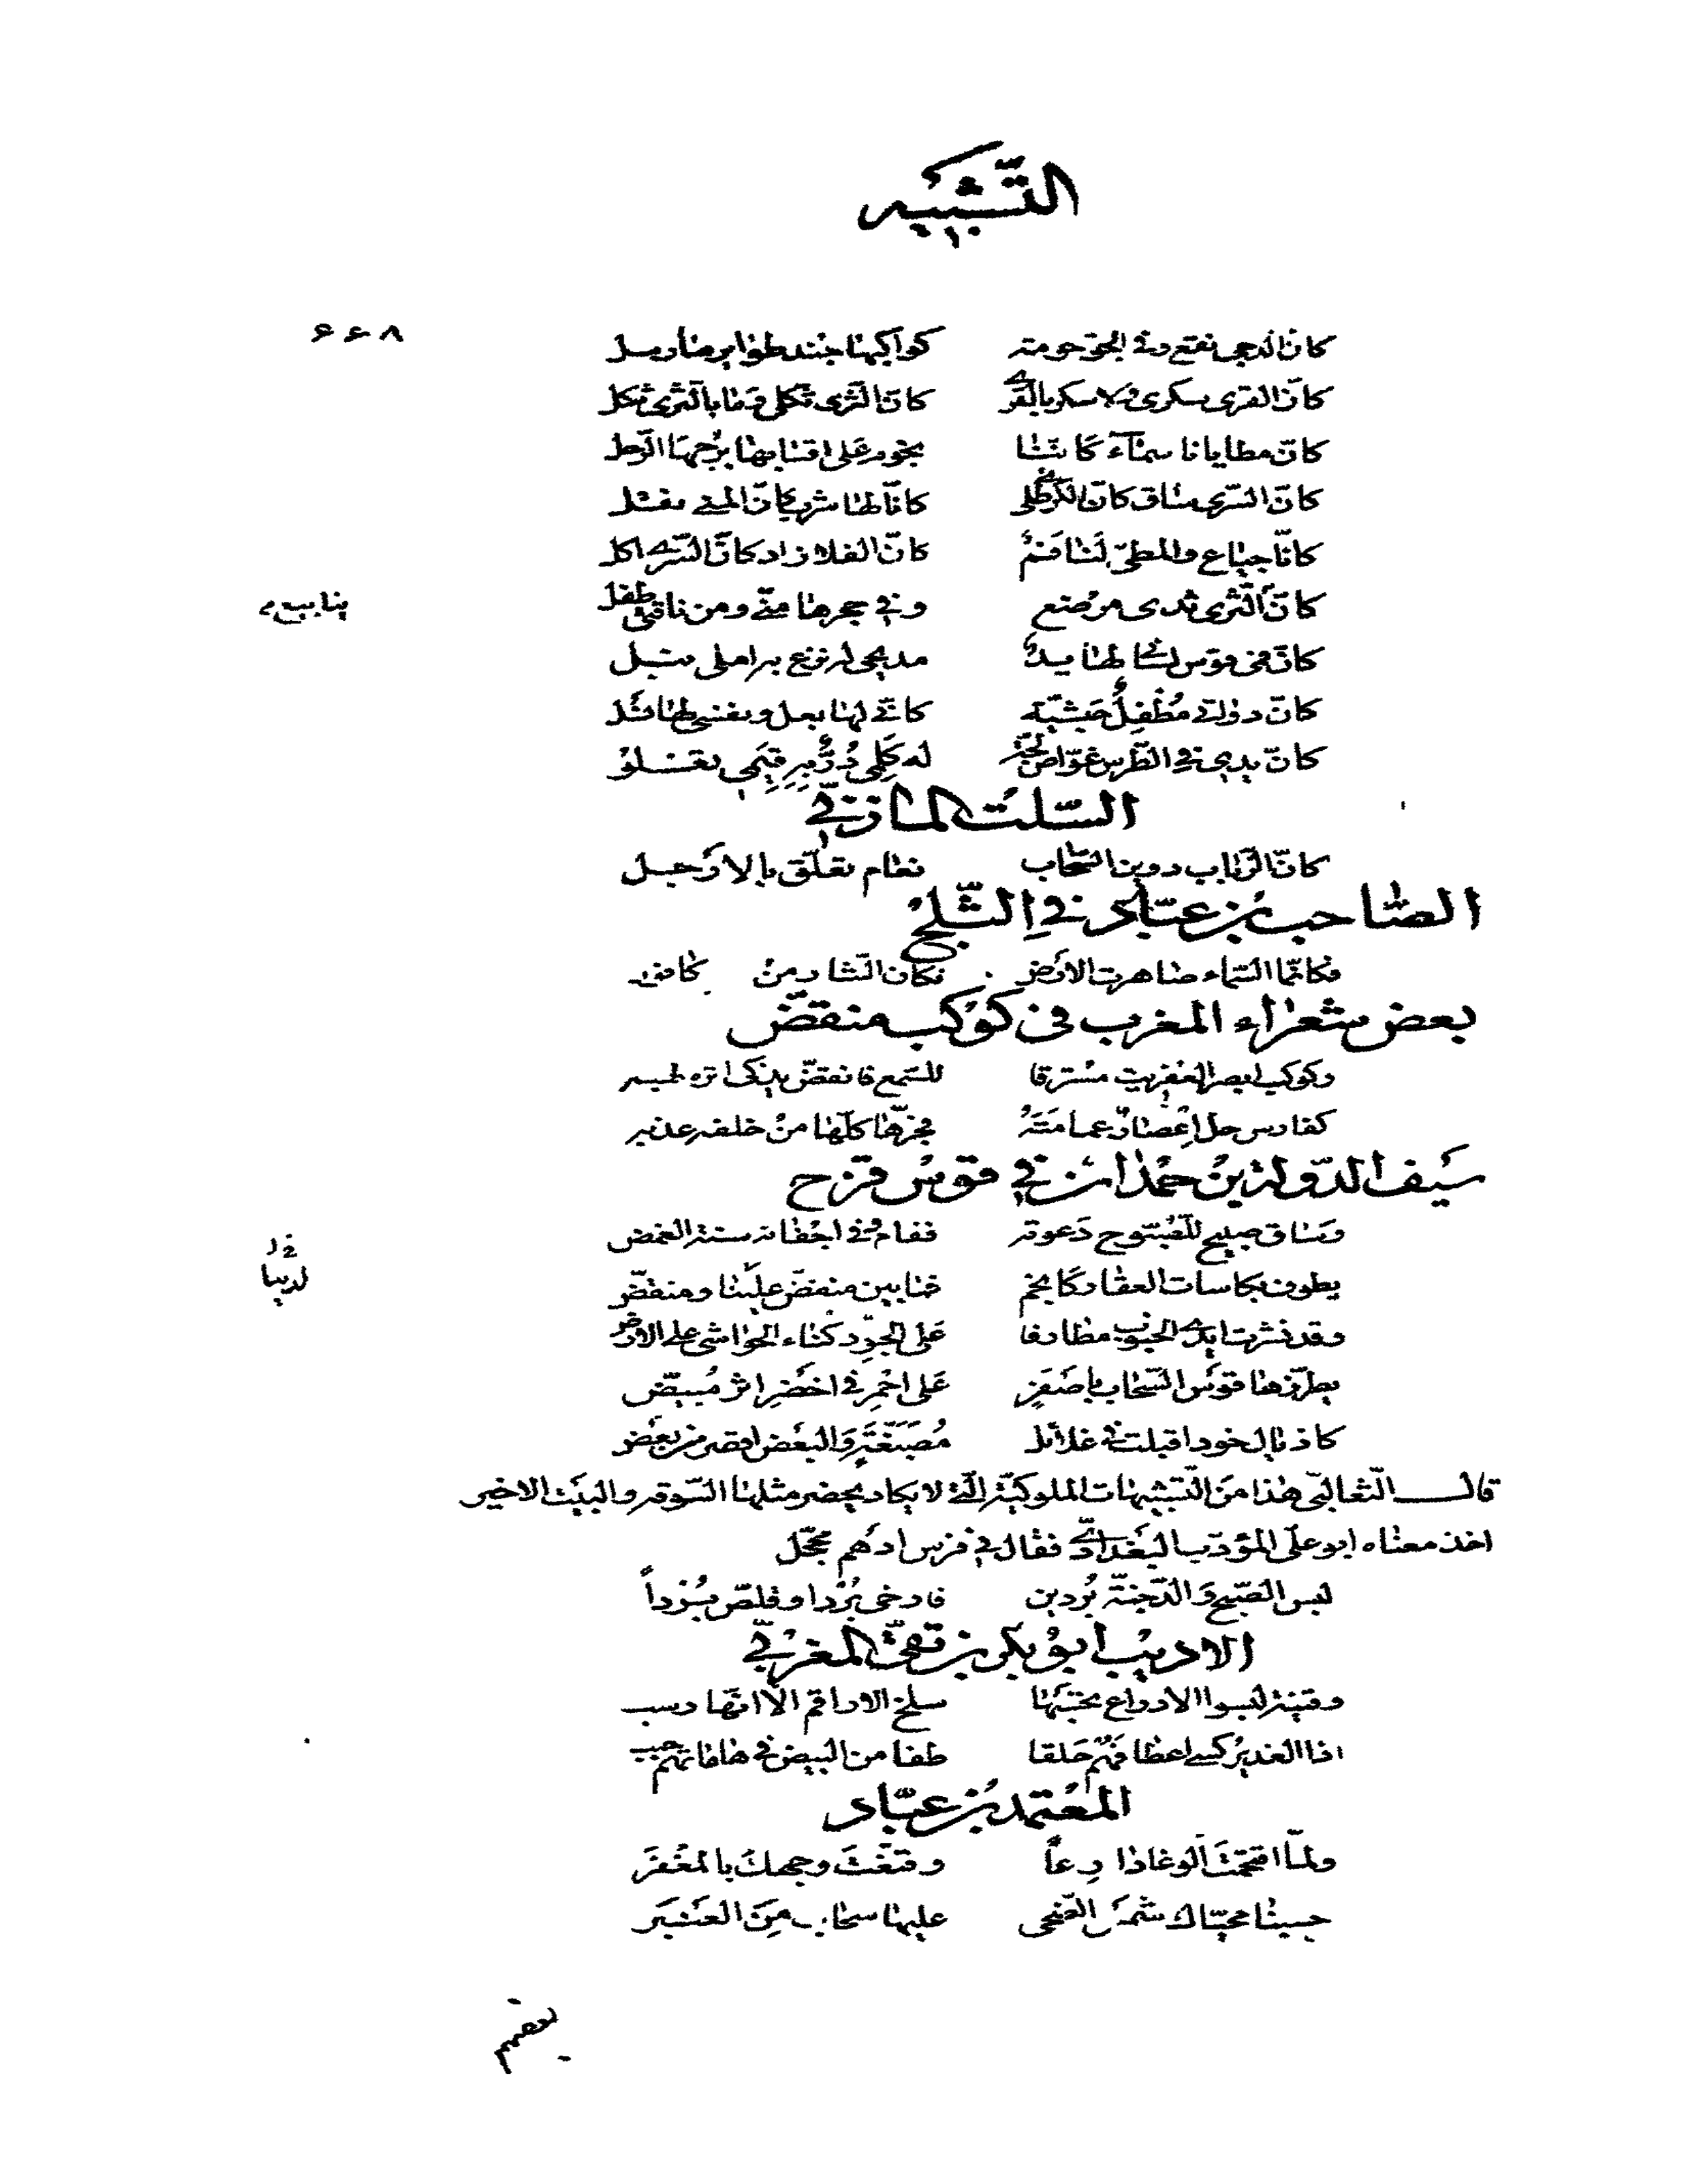 التّشبيه
كانّ الدجى نقع وفى الجوّ حومته كواكبها جند طوائرها رسل
كانّ القرى سكرى ولا سكر بالقرى كانّ الثرى ثكلى وما بالثرى ثكل
كانّ مطايانا سمآء كانّنا نجوم على اقتابها برجها الرّحل
كانّ السّرى ساق كانّ الكرى طلى كانّا لها شرب كانّ المنى نقل
كانّا جياع والمطىّ لنا فم كانّ الفلا زاد كانّ السّرى اكل
كانّ الثّرى ثدى مرضع وفى حجرها منّى ومن ناقتى طفل
ينابيع
كانّ فى قوس لسانى لها يد مديحى له نزع به املى نبل
كانّ دواتى مُطْفِلٌ حبشيّة كانّى لها بعل ونقسى لها نسل
كانّ يدى فى الطّرس غوّاص لجّة له كلمى دُرٌّ به قيمى تغلو
السّلت المازنىّ
كانّ الرّباب دوين السّحاب نعام تعلّق بالارجل
الصّاحب بن عبّاد فى الثّلج
فكانّما السّماء صاهرت الارض فكان النّثار من كافور
بعض شعراء المغرب فى كوكب منقضّ
وكوكب ابصر العفريت مسترقا للسّمع فانقضّ يذكى اثره لهبه
كفارس حلّ اعصار عمامته فجرّها كلّها من خلفه عذبه
سيف الدّولة بن حمدان فى قوس قزح
وساق صبيح للصّبوح دعوته فقام وفى اجفانه سنة الغمض
يطوف بكاسات العقار كانجم فما بين منقضّ علينا ومنفضّ
وقد نشرت ايدى الجنوب مطارفا على الجوّ دكناء الحواشى على الارض
يطرّزها قوس السّحاب باصفر على احمر فى اخضر اثر مُبيضّ
كاذيال خود اقبلت فى غلائل مُصبّغة والبعض اقصر من بعض
قال الثّعالبىّ هذا من التّشبيهات الملوكيّة الّتى لا يكاد يحضر مثلها السّوقه والبيت الاخير
اخذ معناه ابو علىّ المؤدّب البغدادىّ فقال فى فرس ادهم محجّل
لبس الصّبح والدّجنّة بُردين فارخى بُرداً وقلّص بُرداً
الاديب ابو بكر بن بقىّ المغربىّ
وفتية لبسوا الادراع تحسبها سلخ الاراقم الّا انّها رسب
اذا الغدير كسى اعطافهم حلقا طفا من البيض فى هاماتهم حبب
المعتمد بن عبّاد
ولمّا اقتحمت الوغا دارعاً وقنّعت وجهك بالمغفر
حسبنا محيّاك شمس الضّحى عليها سحاب من العنبر